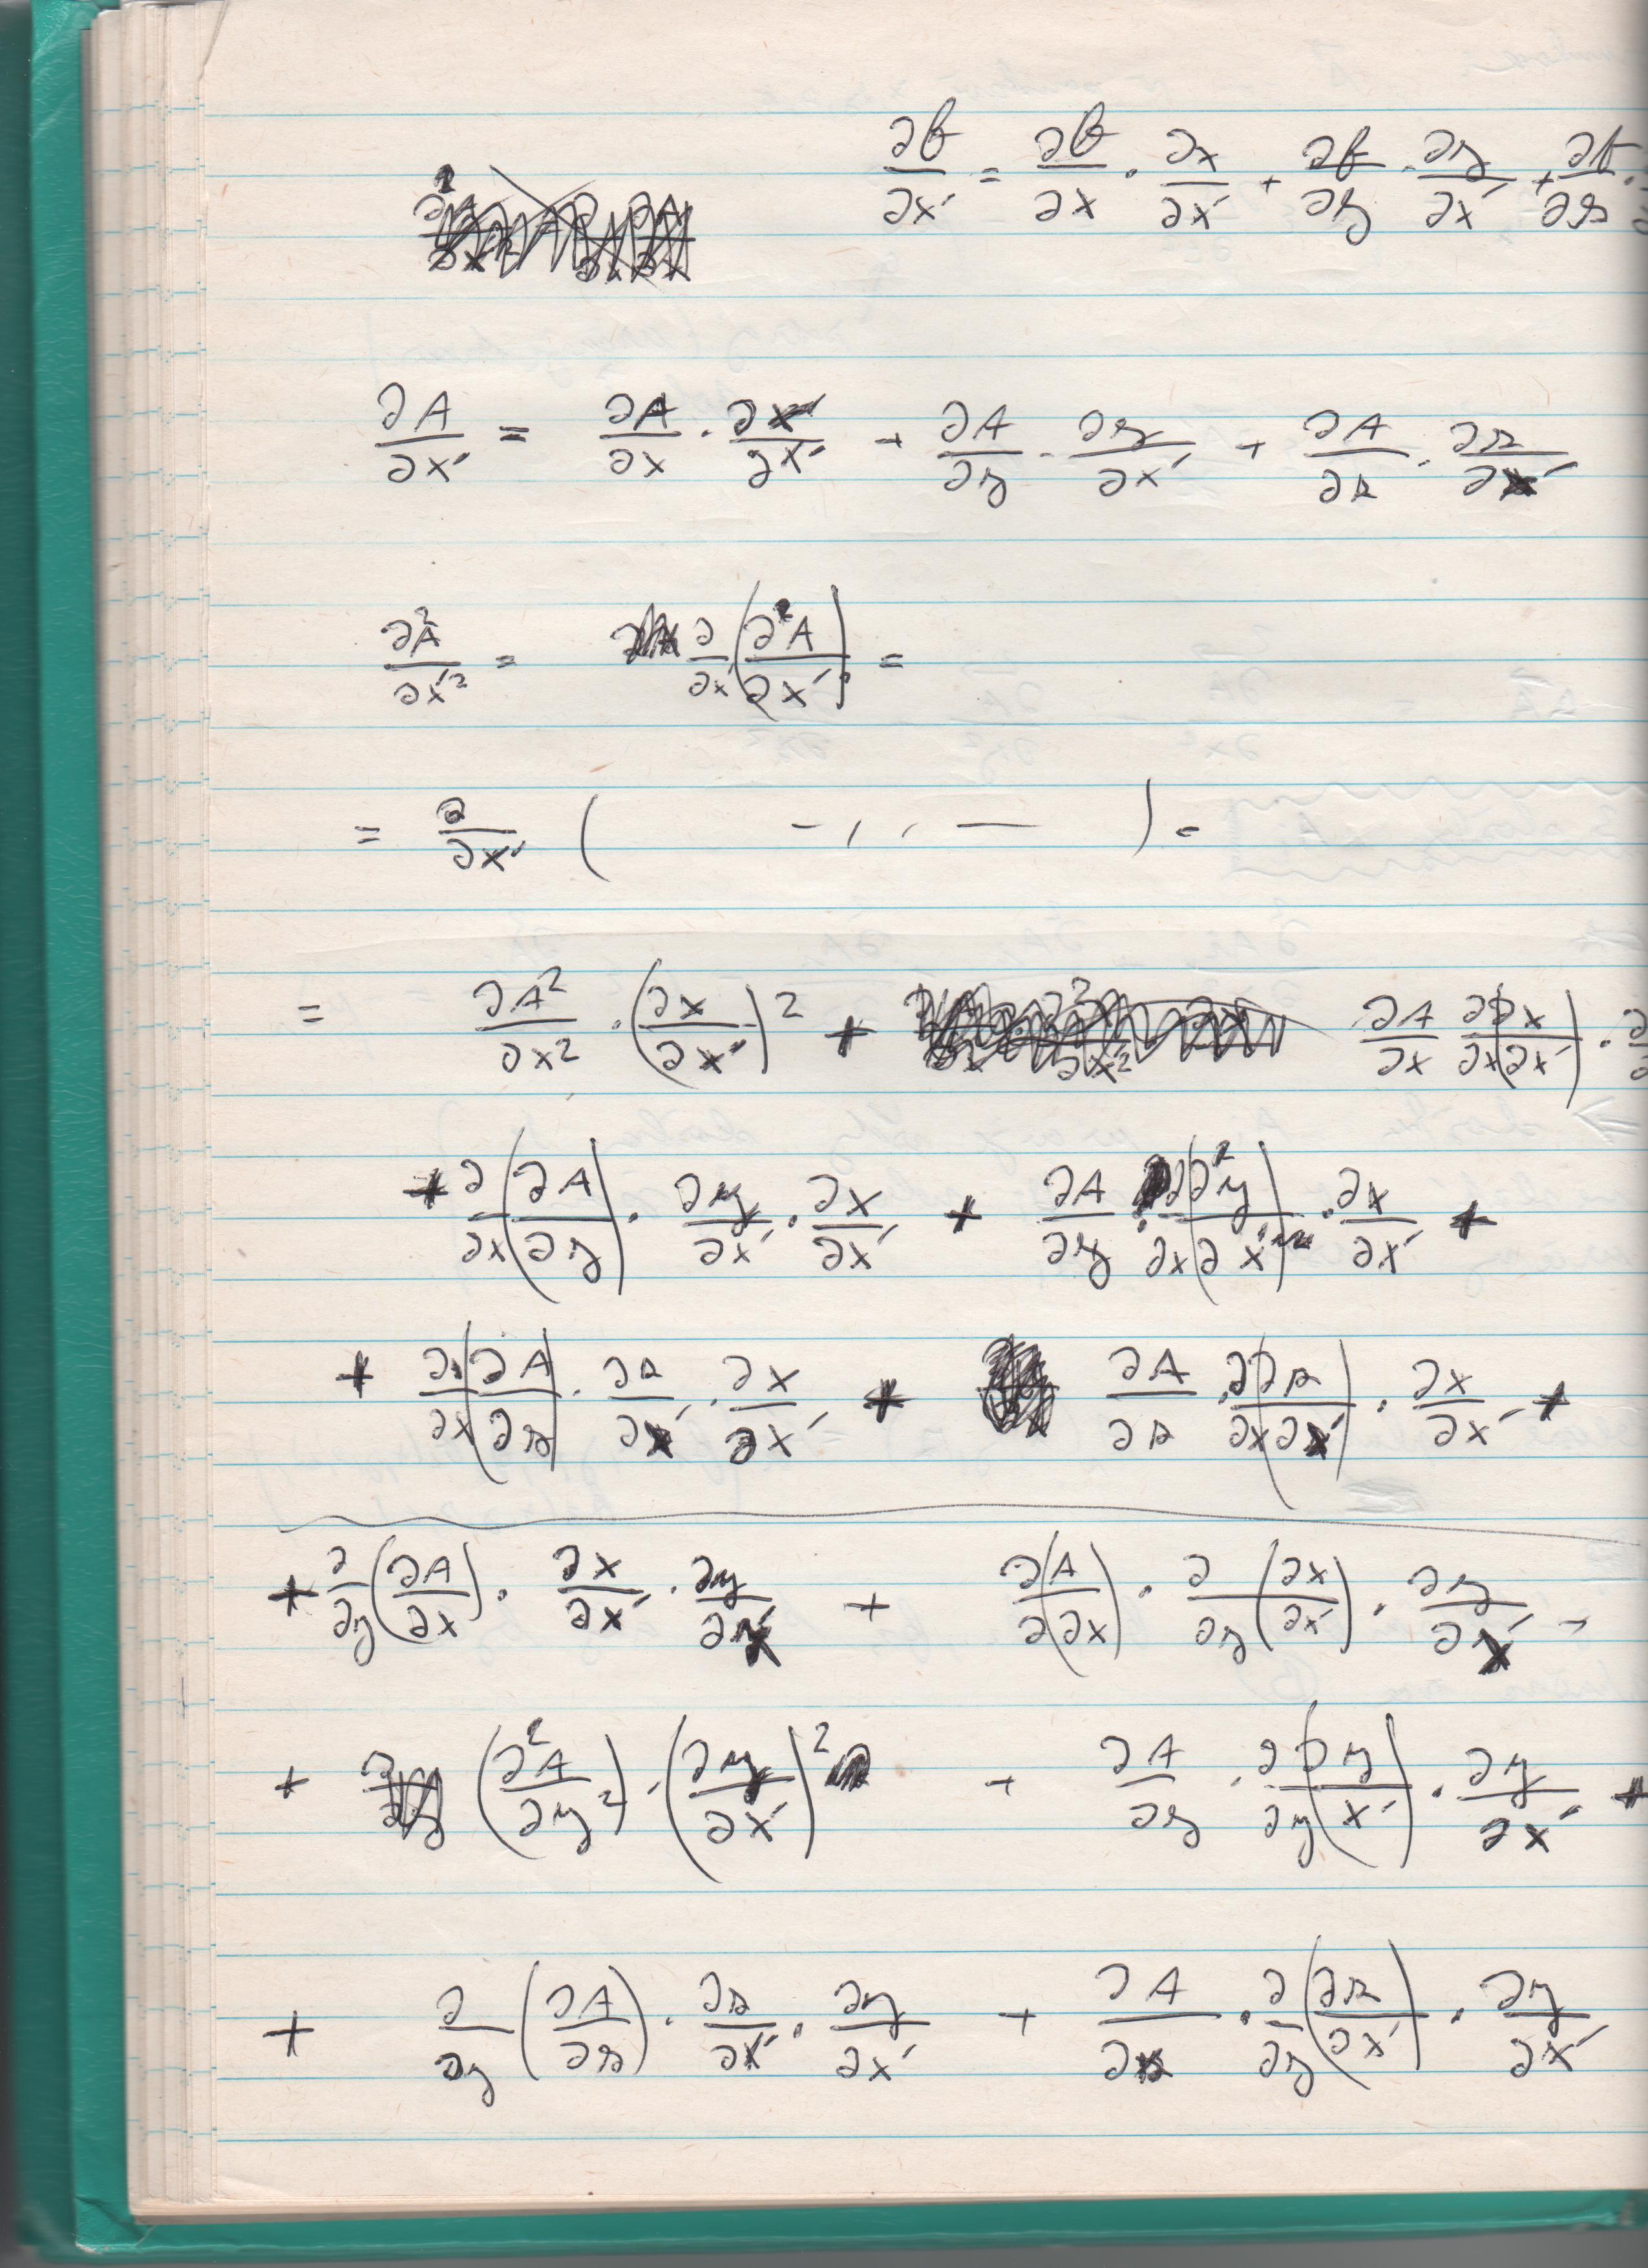 ∂f/∂x′ = ∂f/∂x · ∂x/∂x′ + ∂f/∂y · ∂y/∂x′ + ∂f/∂z ·
∂A/∂x′ = ∂A/∂x · ∂x/∂x′ + ∂A/∂y · ∂y/∂x′ + ∂A/∂z · ∂z/∂x′
∂²A/∂x′² = ∂/∂x′ (∂²A/∂x′) =
= ∂/∂x′ ( - , . . — ) =
= ∂A²/∂x² · (∂x/∂x′)² + ∂A/∂x ∂/∂x(∂x/∂x′) ·
+ ∂/∂x(∂A/∂y) · ∂y/∂x′ · ∂x/∂x′ + ∂A/∂y · ∂/∂x(∂²y/∂x′) · ∂x/∂x′ +
+ ∂/∂x(∂A/∂z) · ∂z/∂x′ · ∂x/∂x′ + ∂A/∂z · ∂/∂x(∂z/∂x′) · ∂x/∂x′ +
+ ∂/∂y(∂A/∂x) · ∂x/∂x′ · ∂y/∂x′ + ∂(A/∂(∂x) · ∂/∂y(∂x/∂x′) · ∂y/∂x′ -
+ (∂²A/∂y²) · (∂y/∂x′)² + ∂A/∂y · ∂/∂y(∂y/x′) · ∂y/∂x′ +
+ ∂/∂y(∂A/∂z) · ∂z/∂x′ · ∂y/∂x′ + ∂A/∂z · ∂/∂y(∂z/∂x′) · ∂y/∂x′